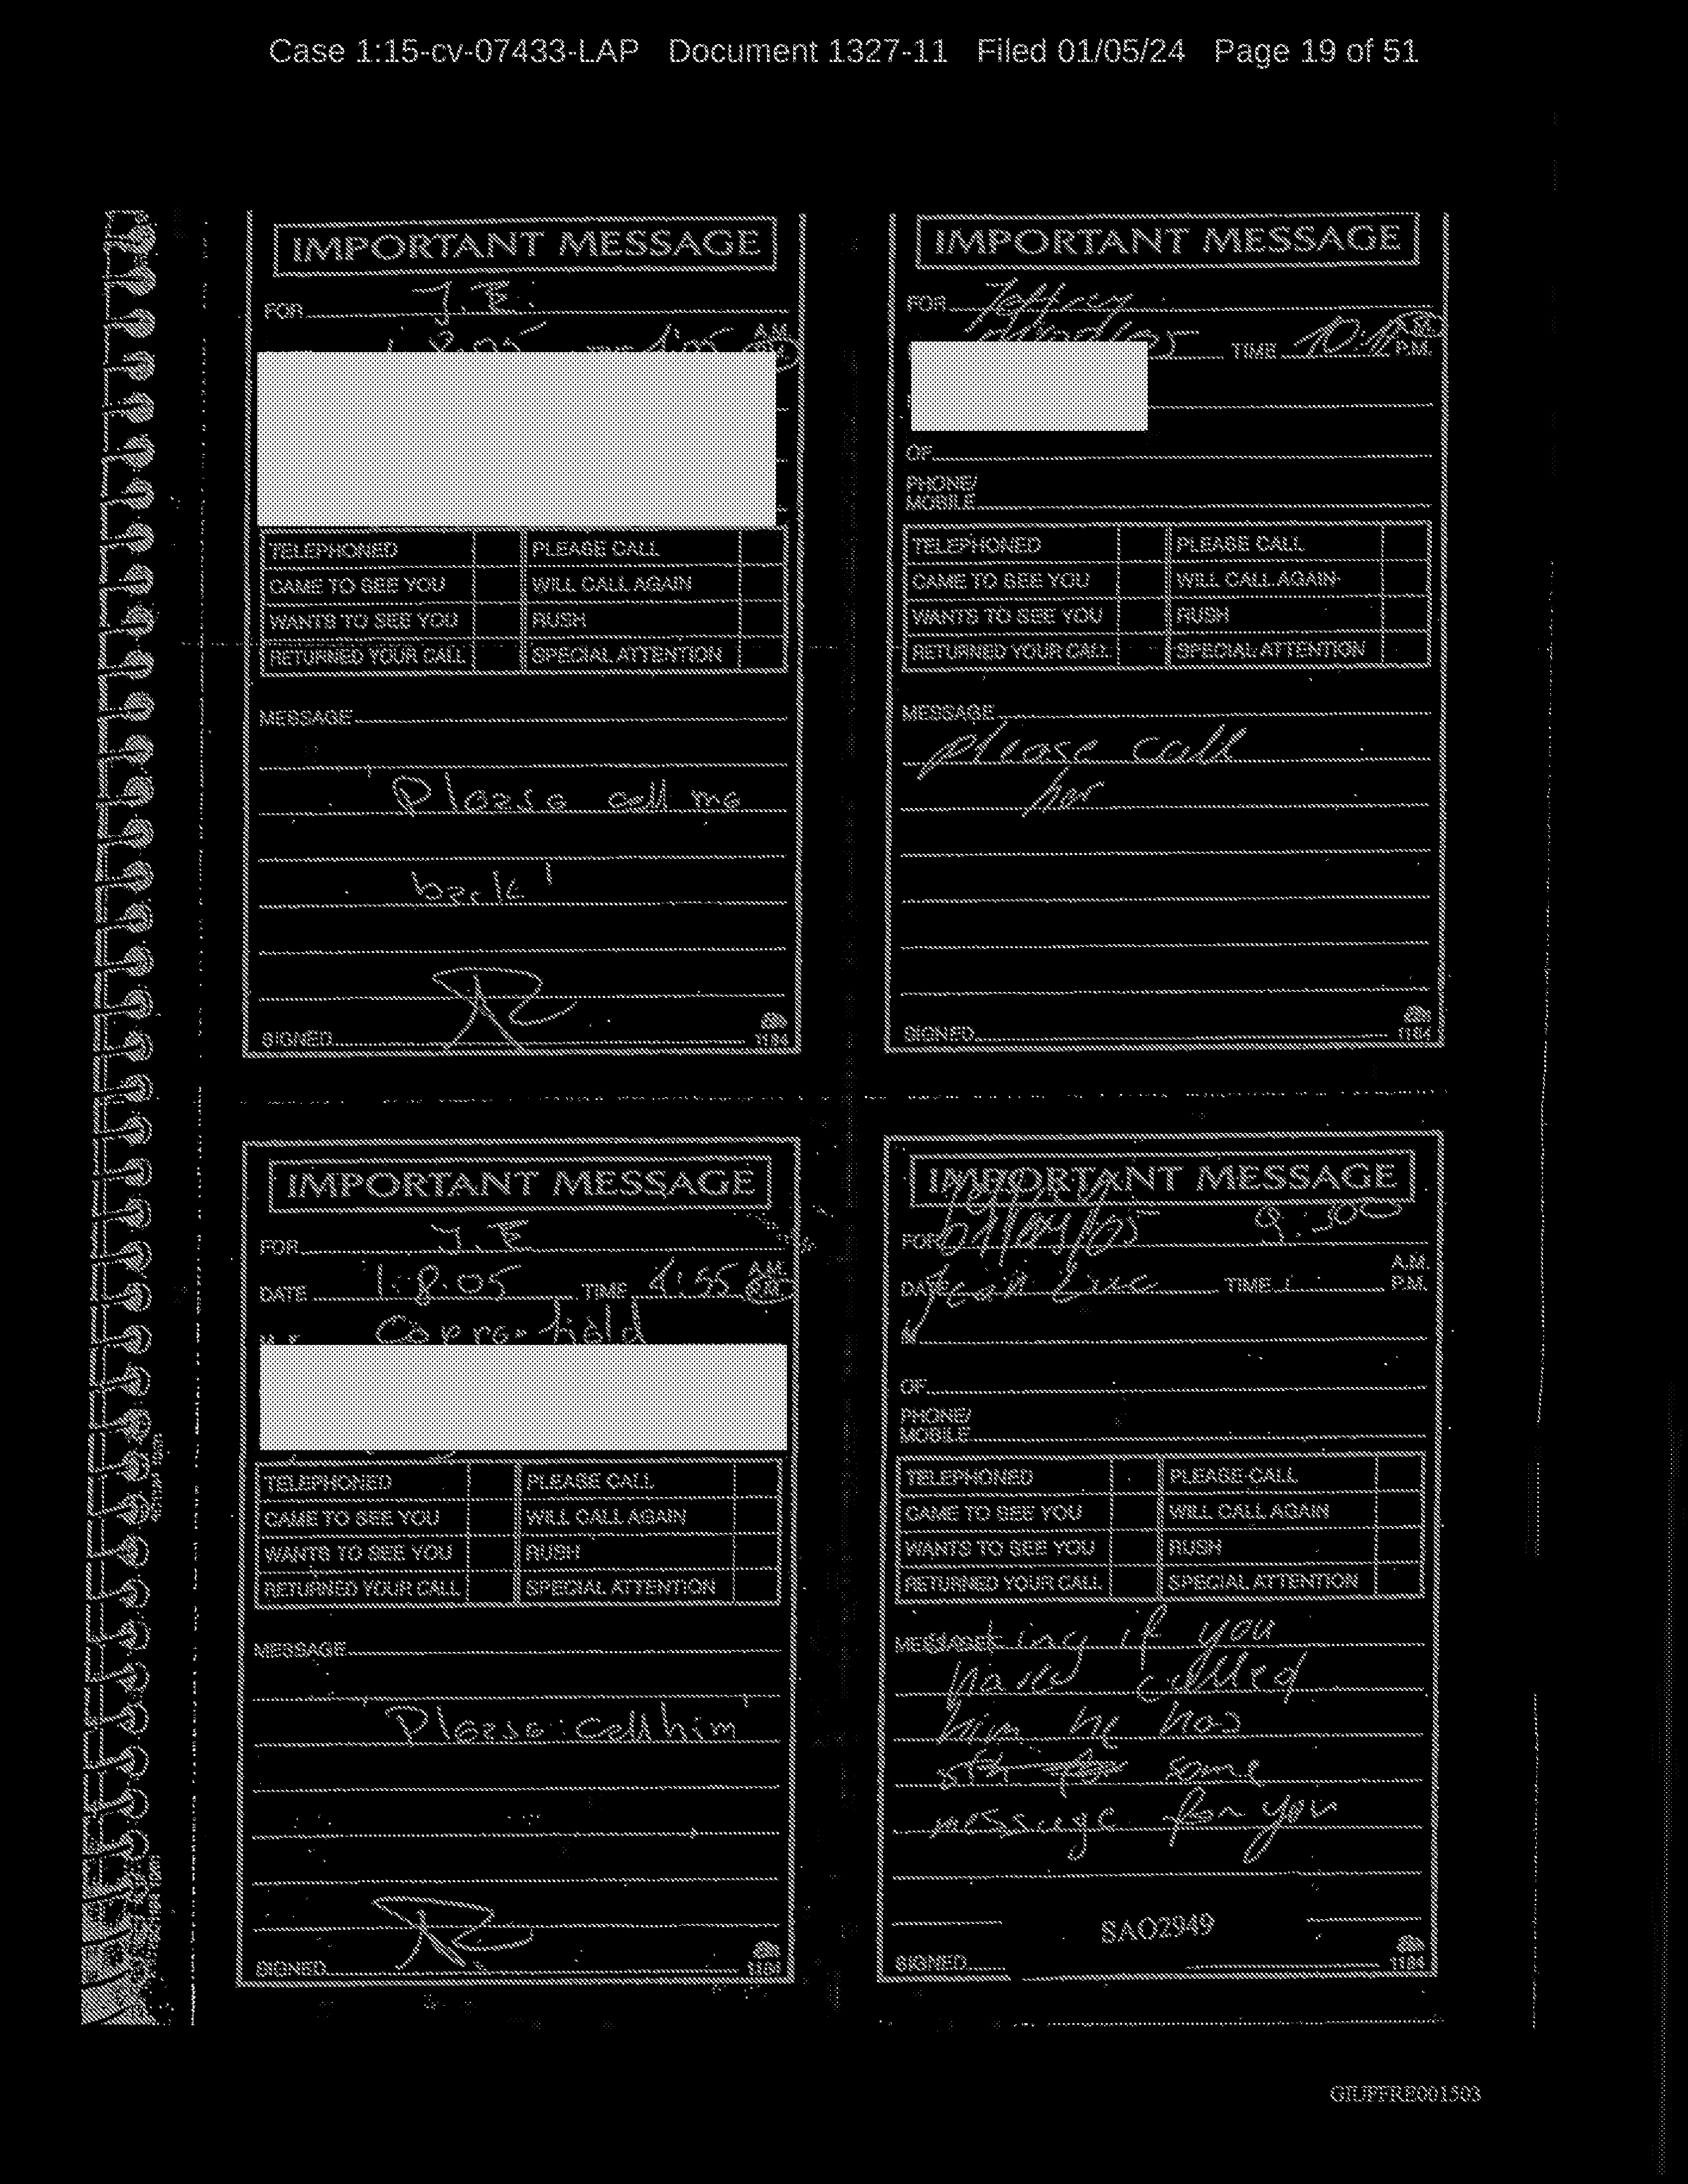 Case 1:15-cv-07433-LAP Document 1327-11 Filed 01/05/24 Page 19 of 51
IMPORTANT MESSAGE
FOR J.E.
1.8.05 A.M.
TELEPHONED PLEASE CALL
CAME TO SEE YOU WILL CALL AGAIN
WANTS TO SEE YOU RUSH
RETURNED YOUR CALL SPECIAL ATTENTION
MESSAGE
Please call me
back!
SIGNED 1184
IMPORTANT MESSAGE
FOR Jeffrey
TIME A.M.
P.M.
OF
PHONE/
MOBILE
TELEPHONED PLEASE CALL
CAME TO SEE YOU WILL CALL AGAIN
WANTS TO SEE YOU RUSH
RETURNED YOUR CALL SPECIAL ATTENTION
MESSAGE
please call
her
SIGNED 1184
IMPORTANT MESSAGE
FOR J.E
DATE 1.8.05 TIME A.M.
P.M.
TELEPHONED PLEASE CALL
CAME TO SEE YOU WILL CALL AGAIN
WANTS TO SEE YOU RUSH
RETURNED YOUR CALL SPECIAL ATTENTION
MESSAGE
Please call him
SIGNED 1184
IMPORTANT MESSAGE
FOR 9:30
A.M.
DATE Jean Luc TIME P.M.
OF
PHONE/
MOBILE
TELEPHONED PLEASE CALL
CAME TO SEE YOU WILL CALL AGAIN
WANTS TO SEE YOU RUSH
RETURNED YOUR CALL SPECIAL ATTENTION
MESSAGE if you
have called
him he has
some
message for you
SAO2949
SIGNED 1184
GIUFFRE001503